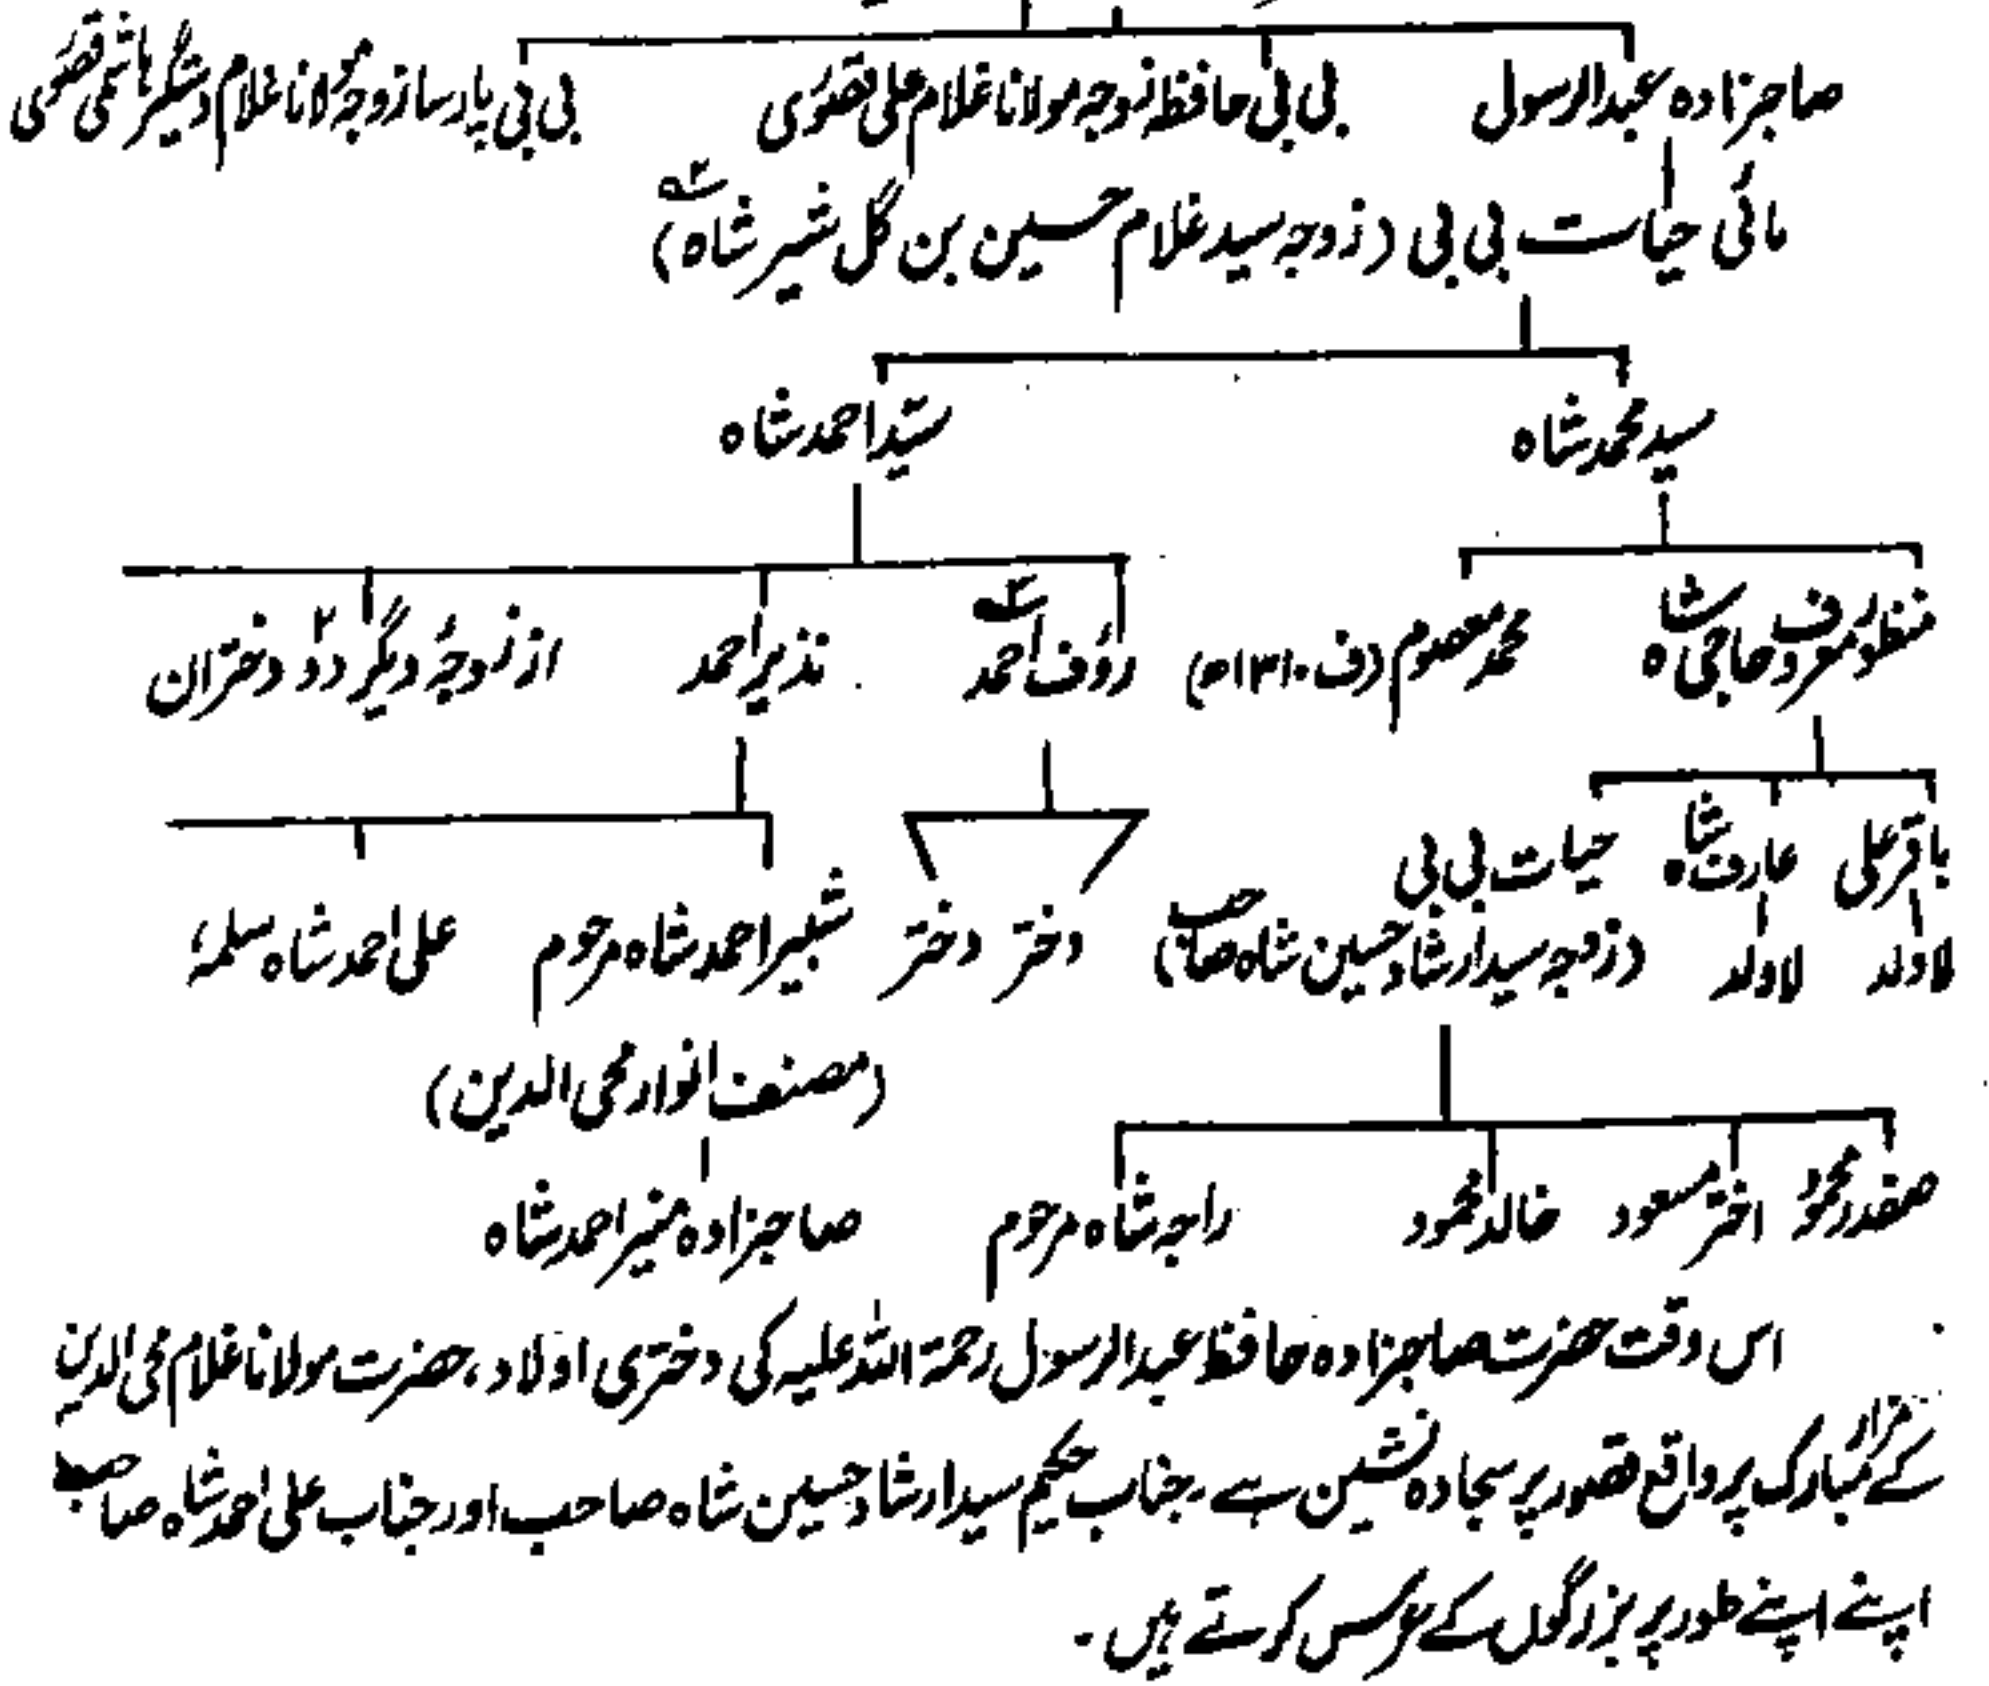 صاحبزادہ عبدالرسول بی بی حافظہ زوجہ مولانا غلام علی قصوری بی بی پارسا زوجہ مولانا غلام دستگیر ہاشمی قصوری
مائی حیات بی بی (زوجہ سید غلام حسین بن گل شیر شاہ)
سید محمد شاہ سیّد احمد شاہ
منظور معروف حاجی شاہ محمد معصوم (ف ۱۳۱۰ھ) رؤف احمد نذیر احمد از زوجۂ دیگر دو ۲ دختران
باقر علی عارف شاہ حیات بی بی
لاولد لاولد (زوجہ سید ارشاد حسین شاہ صاحب) دختر دختر شبیر احمد شاہ مرحوم علی احمد شاہ سلمہٗ
(مصنف انوار محی الدین)
صفدر محمود اختر مسعود خالد محمود راجہ شاہ مرحوم صاحبزادہ منیر احمد شاہ
اس وقت حضرت صاحبزادہ حافظ عبدالرسول رحمۃ اللہ علیہ کی دختری اولاد، حضرت مولانا غلام محی الدین
کے مزار مبارک پر واقع قصور پر سجادہ نشین ہے۔ جناب حکیم سید ارشاد حسین شاہ صاحب اور جناب علی احمد شاہ صاحب
اپنے اپنے طور پر بزرگوں کے عرس کرتے ہیں۔